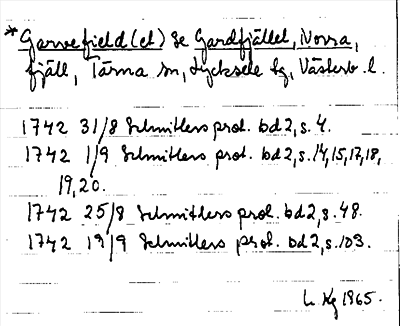 *Garvefield(et) se Gardfjället, Norra,
fjäll, Tärna sn, Lycksele lg, Västerb. l.
1742 31/8 Schnitlers prot. bd 2, s. 4.
1742 1/9 Schnitlers prot. bd 2, s. 14, 15, 17, 18,
19, 20.
1742 25/8 Schnitlers prot. bd 2, s. 48.
1742 19/9 Schnitlers prot. bd 2, s. 103.
L. Kg 1965.